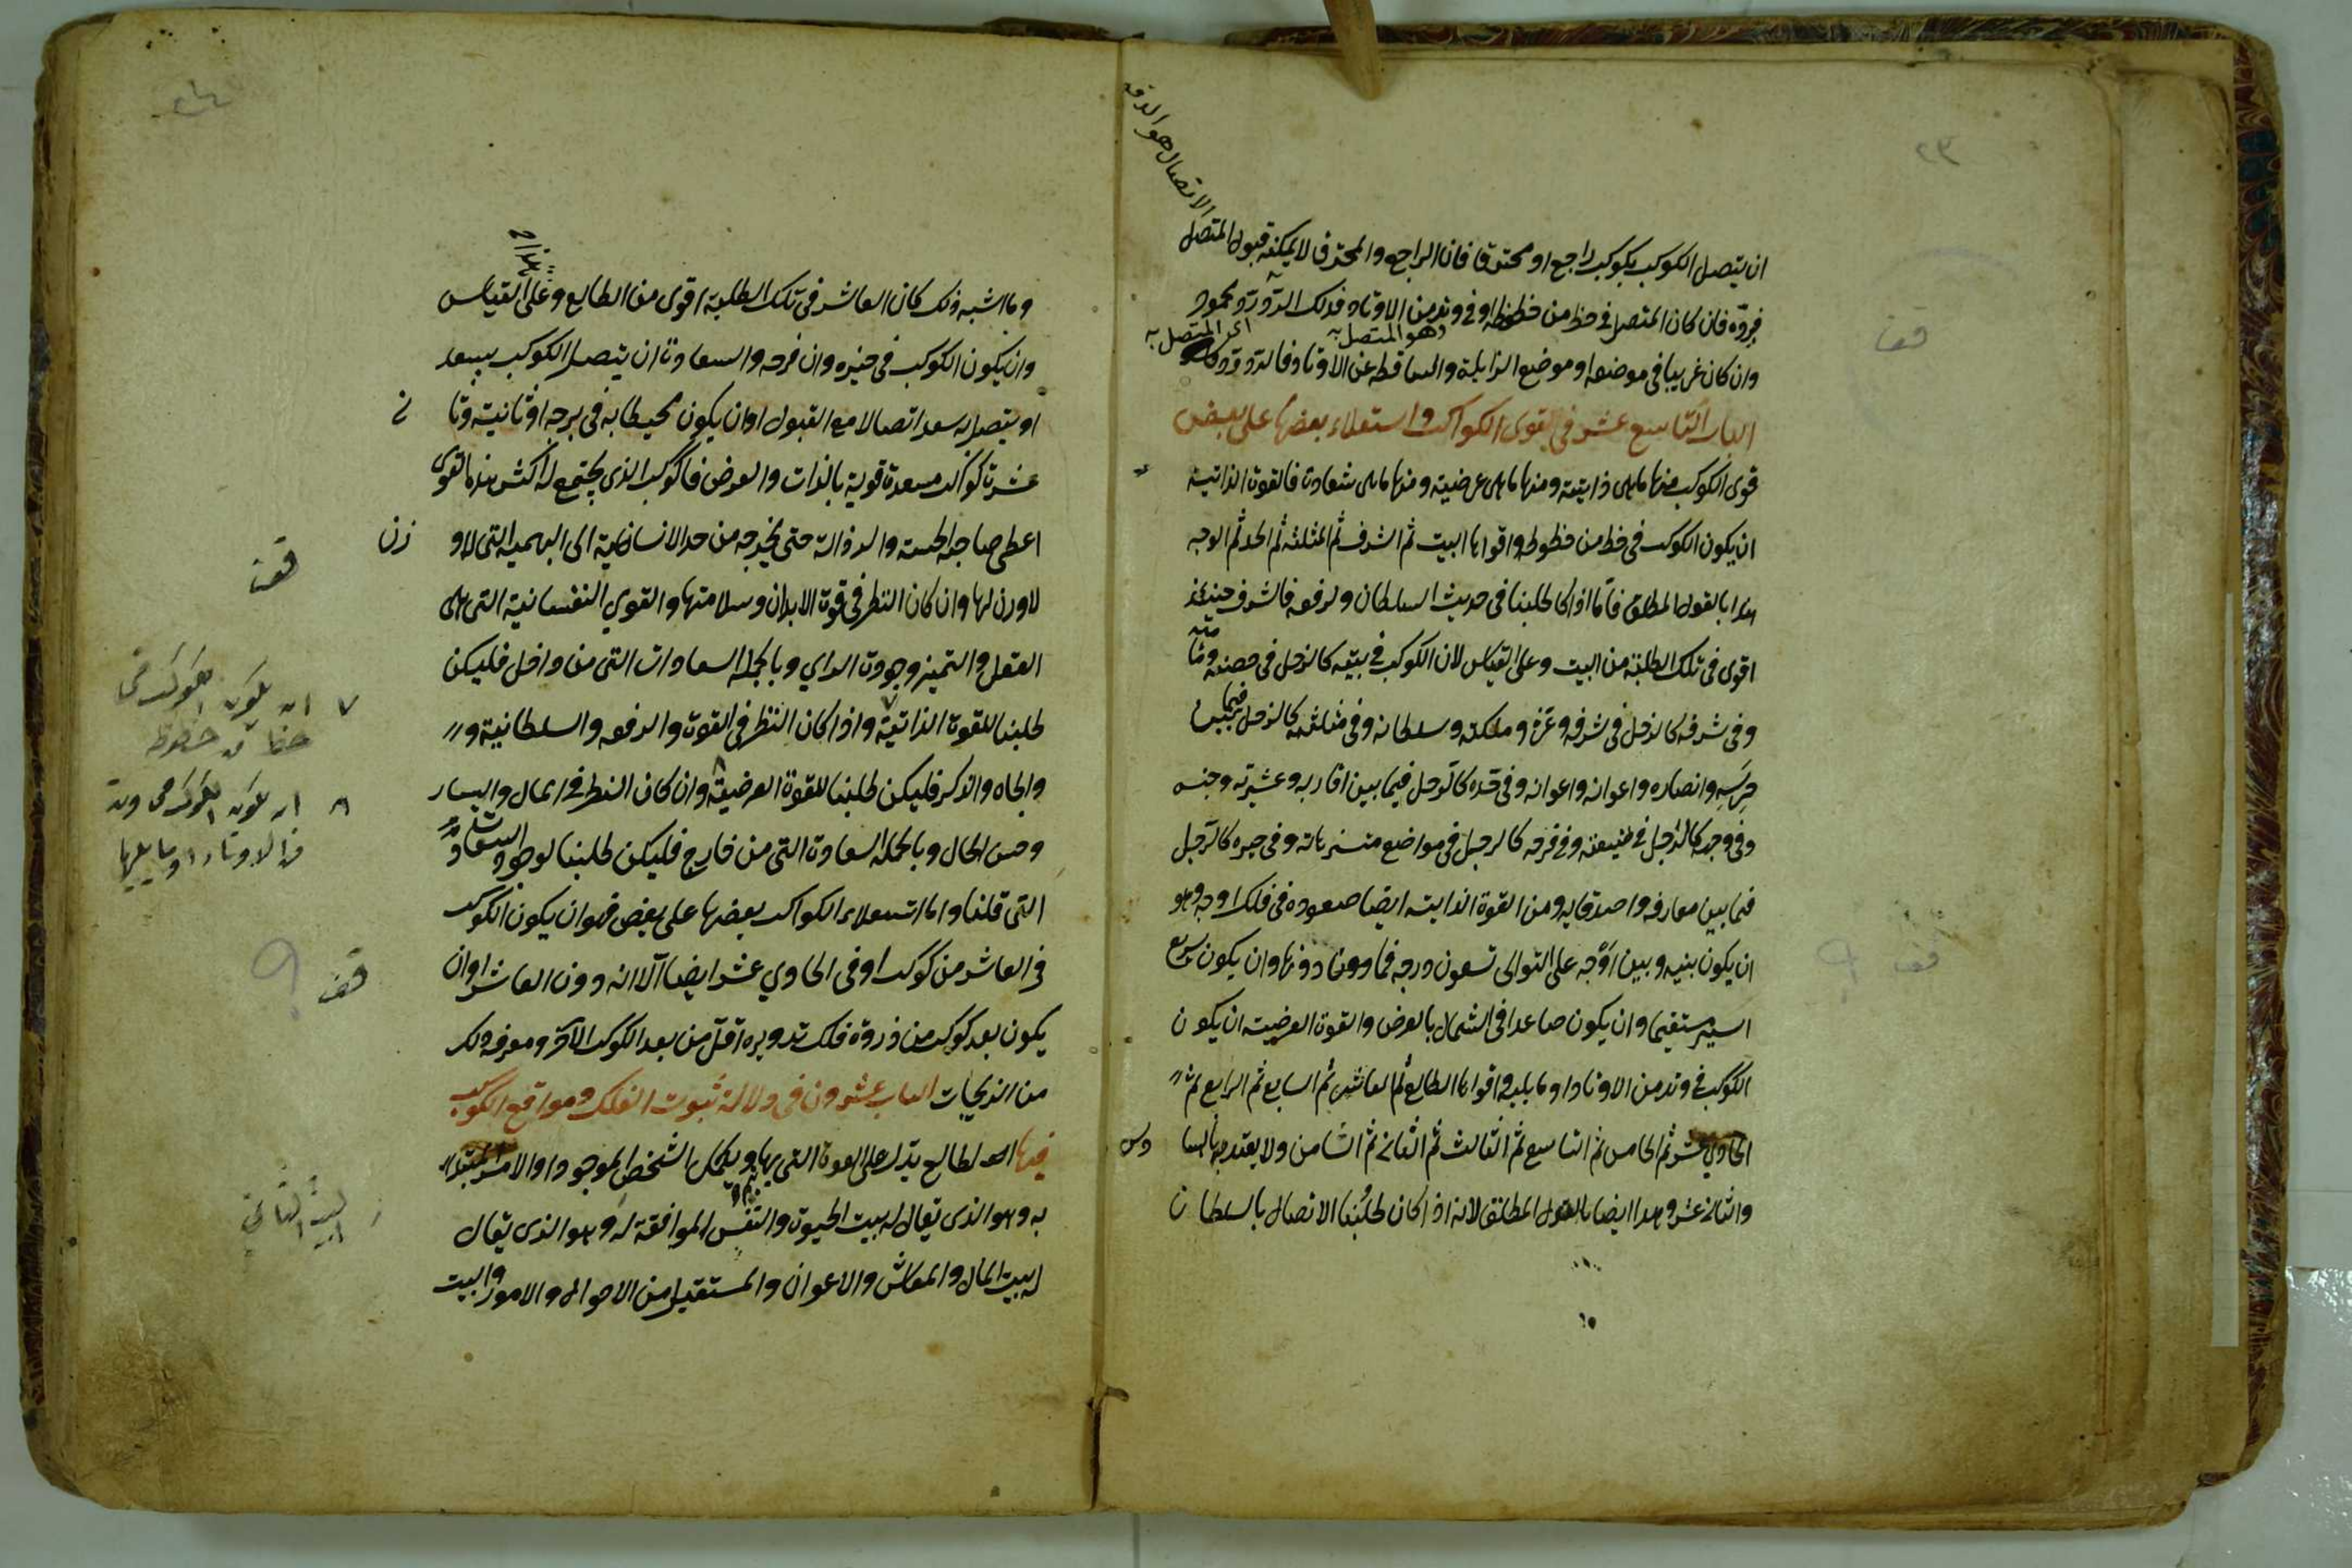 ٢٣
الاتصال هو الدفع
ان يتصل الكوكب بكوكب راجع او محترق فان الراجع والمحترق لا يمكنه قبول المتصل
فيردّه فان كان المتصل في حظ من حظوظه او في وتد من الاوتاد فذلك الردّ ردّ محمود
وهو المتصل به
اعني المتصل به
وان كان غريبا في موضعه او موضع الزايلة والساقطه عن الاوتاد فالردّ ردّ
قف
الباب التاسع عشر في قوى الكواكب واستعلاء بعضها على بعض
قوى الكوكب منها ما هى ذاتية ومنها ما هى عرضية ومنها ما هى سعادة فالقوة الذاتية
ان يكون الكوكب فى حظ من حظوظه واقواها البيت ثم الشرف ثم المثلثه ثم الحد ثم الوجه
هذا بالقول المطلق فاما اذا كا طلبنا فى حديث السلطان والرفعه فالشرف حينئذ
اقوى فى تلك الطلبة من البيت وعلى القياس لان الكوكب فى بيته كالرجل فى حصنه
وفى شرفه كالرجل فى شرفه وعزه وملكته وسلطانه وفى مثلثته كالرجل فيما بين
حرسه وانصاره واعوانه واعوانه وفى حده كالرجل فيما بين اقاربه وعشيرته وجنسه
وفى وجهه كالرجل فى وفى فرحه كالرجل فى مواضع متنزهاته وفى حيزه كالرجل
فيما بين معارفه واصدقايه ومن القوة الذاتيه ايضا صعوده فى فلك اوجه وهو
ان يكون بينه وبين اوجه على التوالى تسعون درجه فما دونها وان يكون سريع
قف
السير مستقيما وان يكون صاعدا فى الشمال بالعرض والقوة العرضية ان يكون
الكوكب فى وتد من الاوتاد او ما يليه واقواها الطالع ثم العاشر ثم السابع ثم الرابع ثم
الحادي عشر ثم الخامس ثم التاسع ثم الثالث ثم الثاني ثم الثامن ولا يعتد بالسا دس
والثاني عشر وهذا ايضا بالقول المطلق لانه اذا كان طلبنا الاتصال بالسلطان
وما اشبه ذلك كان العاشر فى تلك الطلبة اقوى من الطالع وعلى هذا القياس
وان يكون الكوكب فى حيزه وان فرحه والسعادة ان يتصل الكوكب بسعد
او يتصل به سعد اتصالا مع القبول او ان يكون محيطا به فى برجه او ثانيه وثا ني
عشرة كواكب مسعدة قوية بالذات والعرض فالكوكب الذى يجتمع له اكثر هذه القوى
اعطى صاحبه الخسة والرذالة حتى يخرجه من حد الانسانية الى البهيمية التى لاو زن
لاوزن لها وان كان النظر فى قوة الابدان وسلامتها والقوى النفسانية التى هى
قف
العقل والتميز وجودة الراي وبالجملة السعادات التى من داخل فليكن
طلبنا للقوة الذاتية واذا كان النظر فى القوة والرفعه والسلطانية و
والجاه والذكر فليكن طلبنا للقوة العرضية وان كان النظر فى المال واليسار
وحسن الحال وبالجملة السعادة التى من خارج فليكن طلبنا لوجود السعادة
٧ ان يكون الكوكب فى
حظ من حظوظه
٨ ان يكون الكوكب فى وتد
من الاوتاد او ما يليها
التى قلنا واما استعلاء الكواكب بعضها على بعض فهو ان يكون الكوكب
فى العاشر من كوكب او فى الحادي عشر ايضا الا انه دون العاشر او ان
قف
يكون بعد كوكب من ذروة فلك تدويره اقل من بعد الكوكب الاخر ومعرفه ذلك
من الزيجات الباب عشرون فى دلالة بيوت الفلك ومواقع الكوكب
فيها الطالع يدل على القوة التى بها الشخص الموجود او الامر المبتدا
به وهو الذى يقال له بيت الحيوة والنفس الموافقة له وهو الذى يقال
البيت الثاني
له بيت المال والمعاش والاعوان والمستقبل من الاحوال والامور والبيت